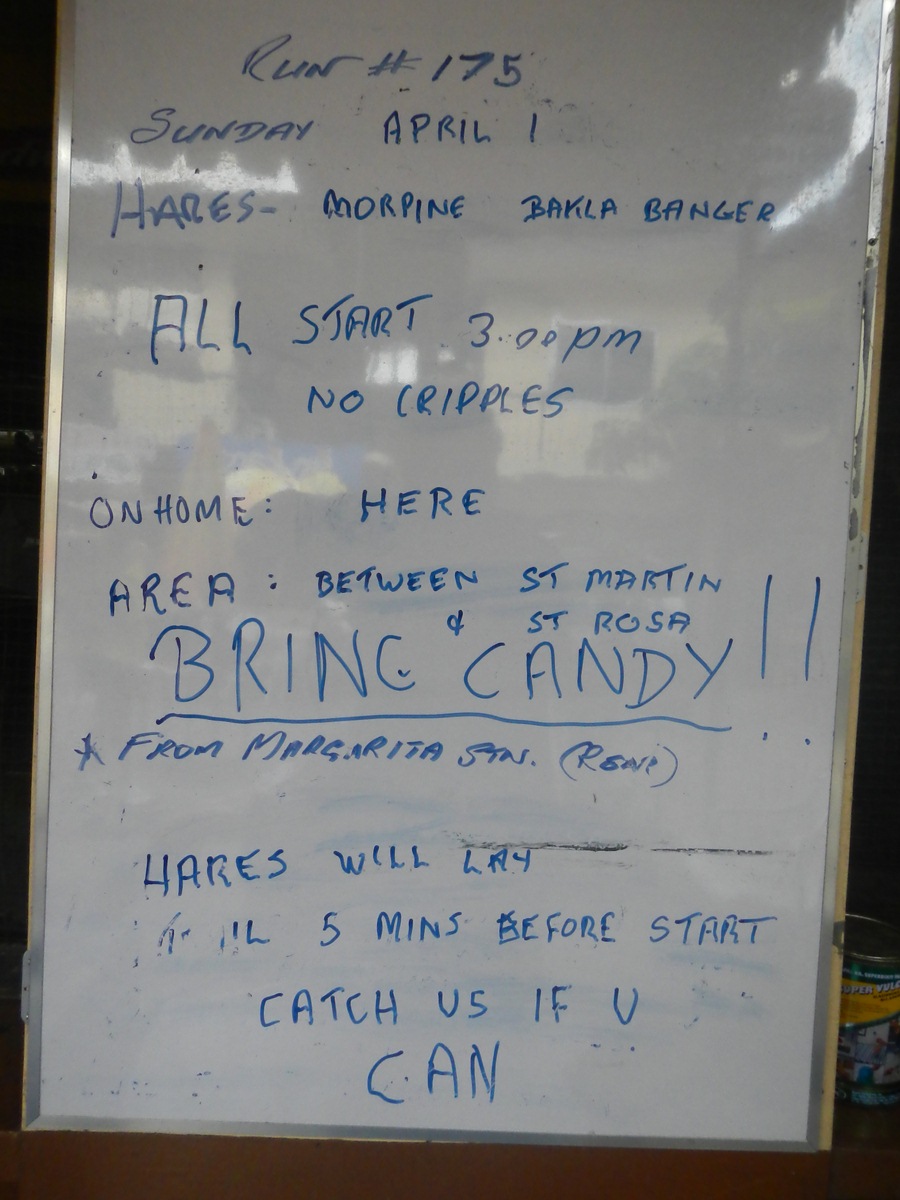 RUN # 175
SUNDAY APRIL 1
HARES- MORPINE BAKLA BANGER
ALL START 3.00pm
NO CRIPPLES
ON HOME: HERE
AREA: BETWEEN ST MARTIN
& ST ROSA
BRING CANDY!!
* FROM MARGARITA STN.
HARES WILL LAY
5 MINS BEFORE START
CATCH US IF U
CAN
SUPER